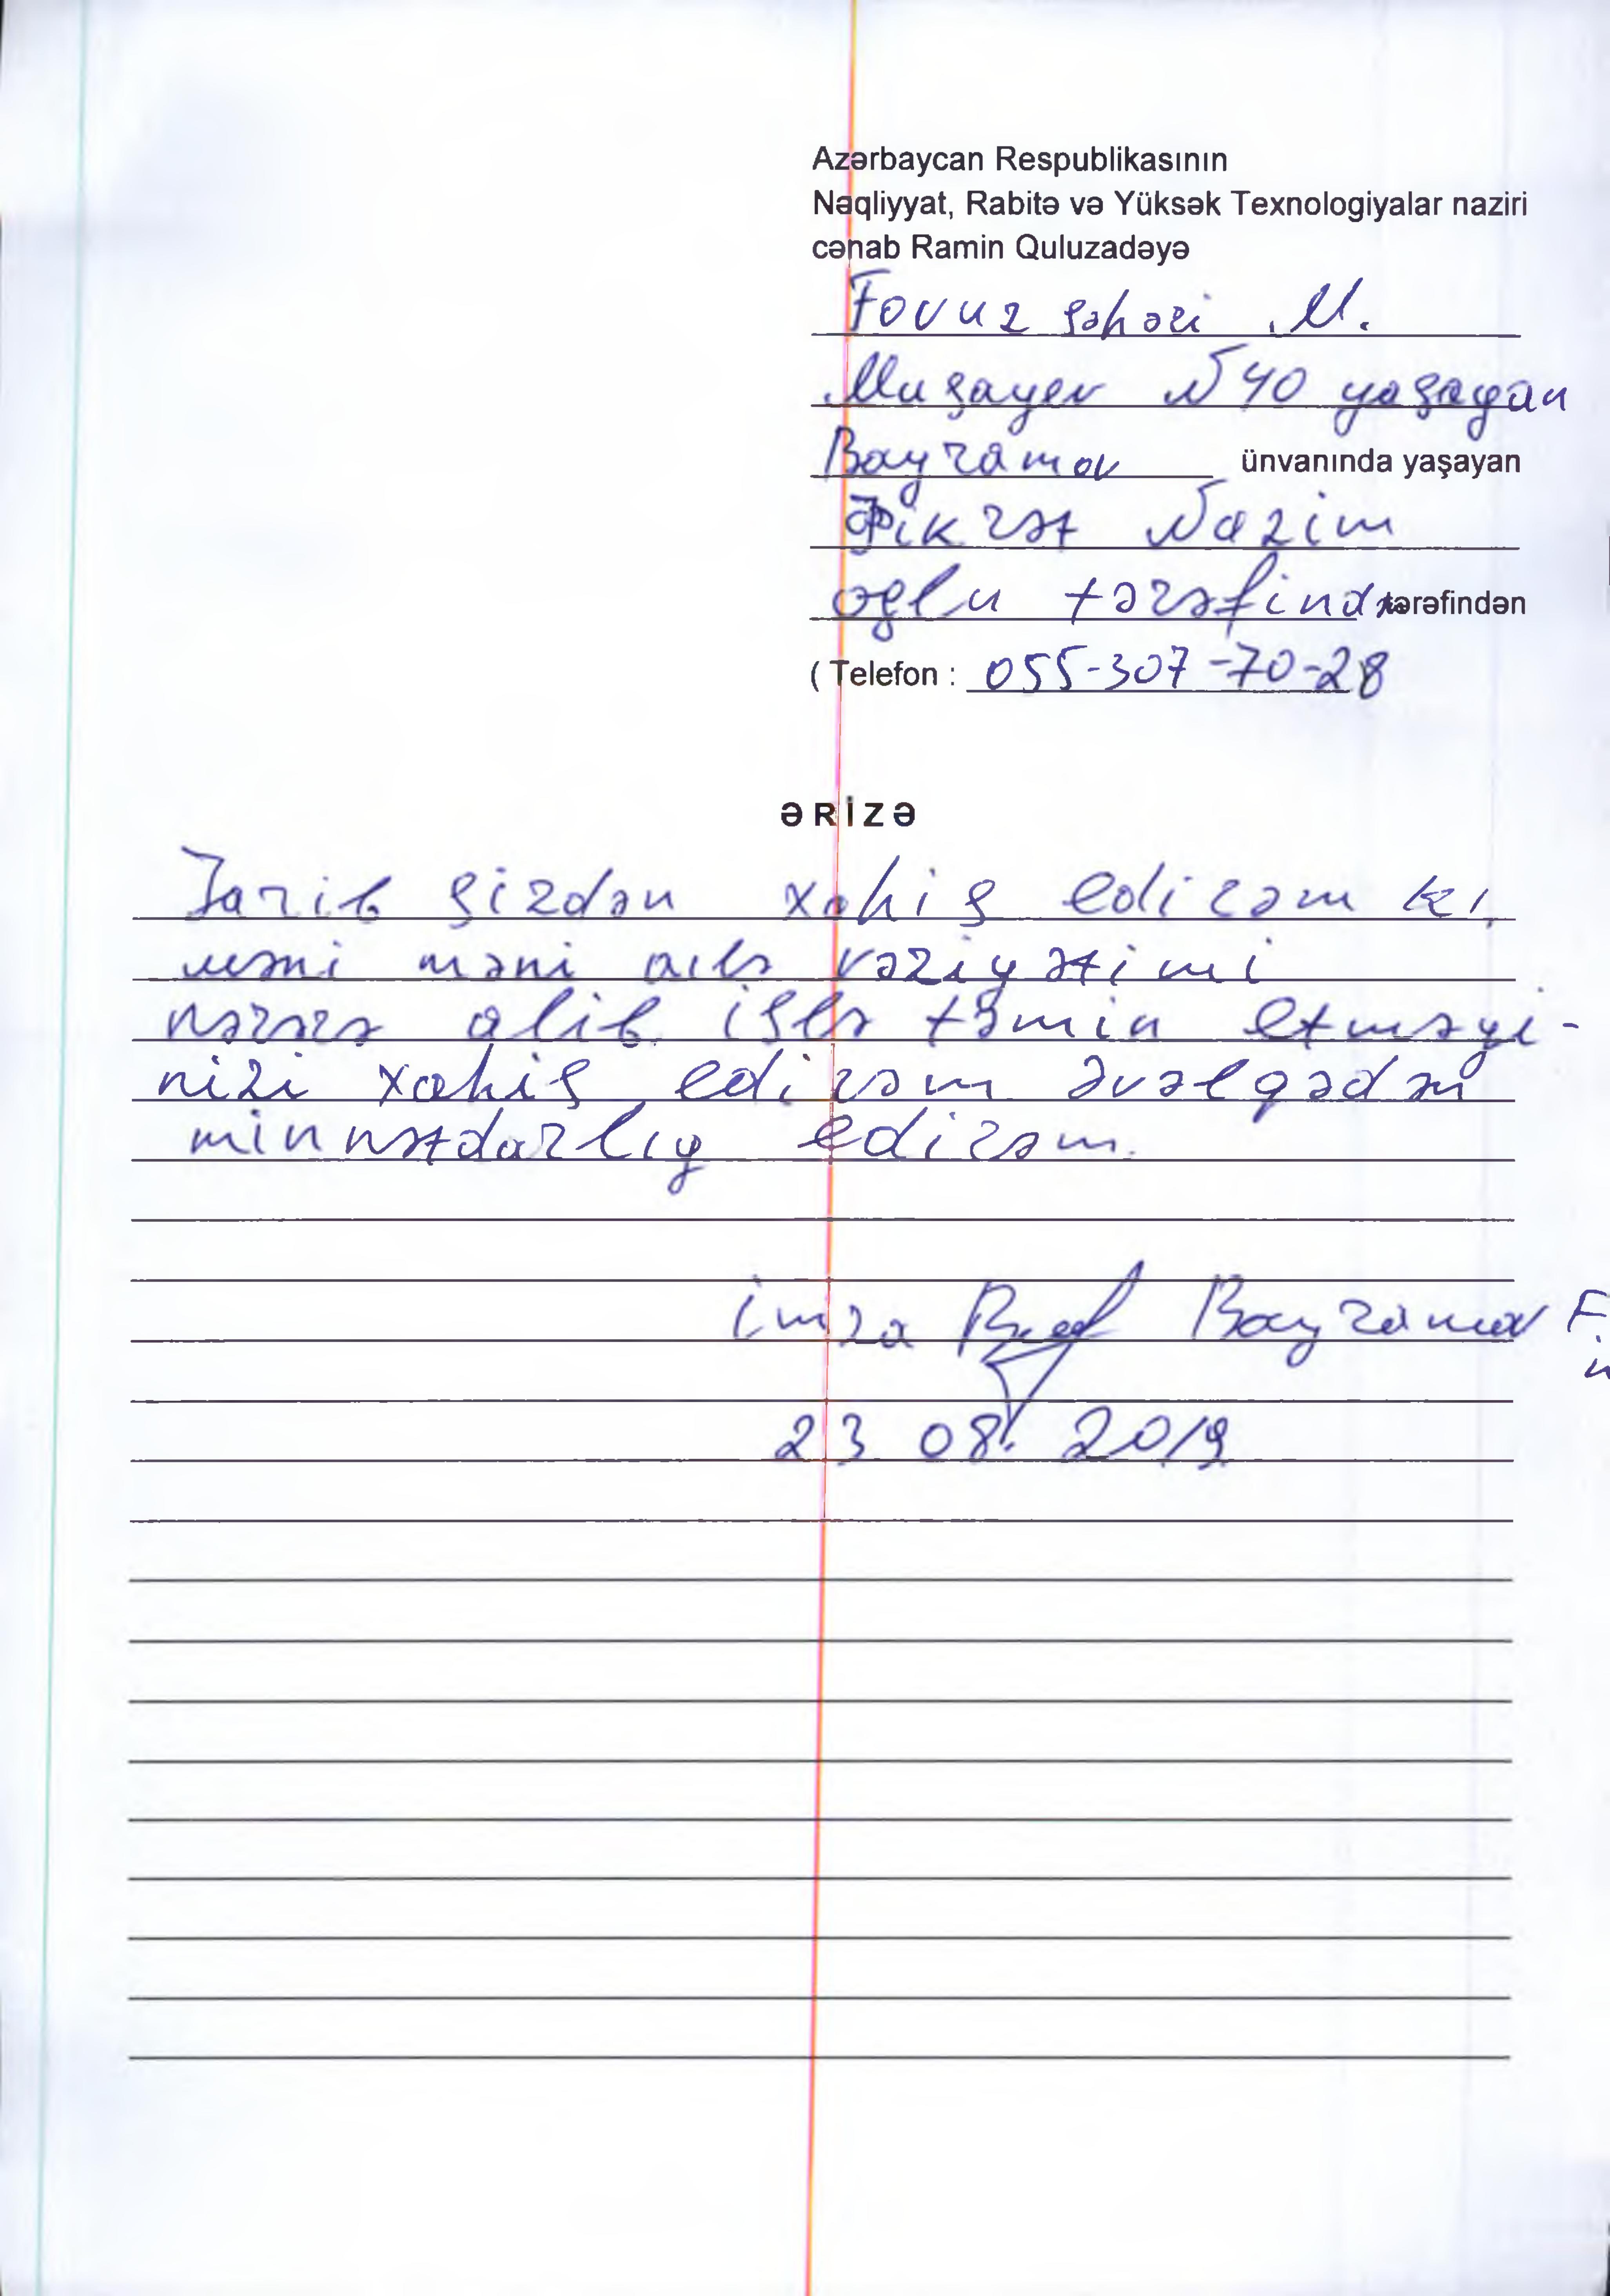 Azərbaycan Respublikasının
Nəqliyyat, Rabitə və Yüksək Texnologiyalar naziri
cənab Ramin Quluzadəyə
Tovuz şəhəri M.
Muşayev N40 yaşayan
Bayramov ünvanında yaşayan
Fikrət Nazim
oğlu tərəfindən tərəfindən
( Telefon : 055-307-70-28
ƏRİZƏ
Yazib sizdən xahiş edirəm ki,
məni ailə vəziyətimi
nəzərə alib işlə təmin etməyi-
nizi xahiş edirəm əvəlqədən
minnətdarlıq edirəm.
imza Bayramov F.
23 08. 2019